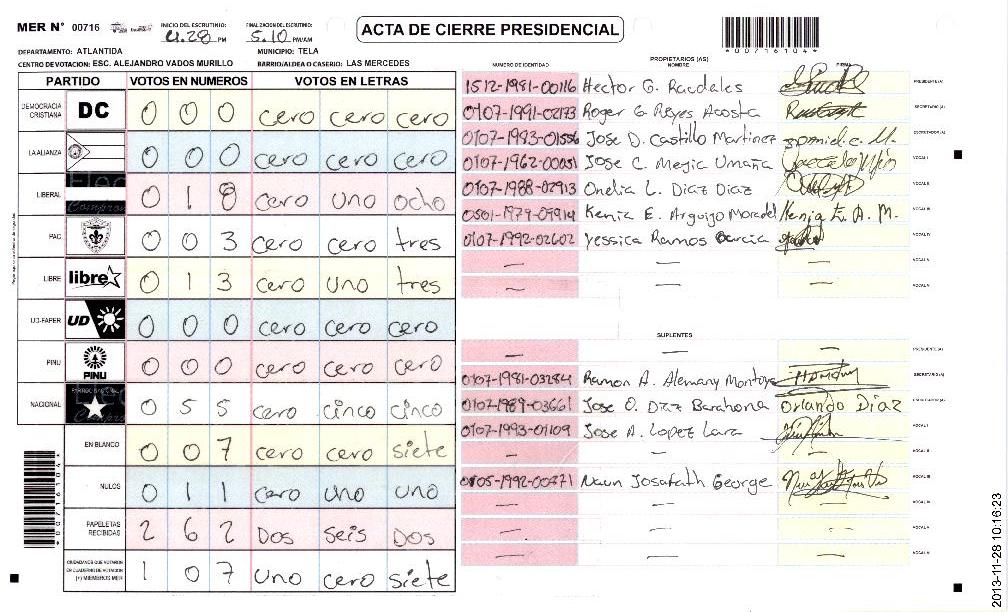 MER N° 00716 INICIO DEL ESCRUTINIO: 4.28 PM FINALIZACION DEL ESCRUTINIO: 5.10 PM/AM
ACTA DE CIERRE PRESIDENCIAL
*00716104*
DEPARTAMENTO: ATLANTIDA MUNICIPIO: TELA
CENTRO DE VOTACION: ESC. ALEJANDRO VADOS MURILLO BARRIO/ALDEA O CASERIO: LAS MERCEDES
PARTIDO VOTOS EN NUMEROS VOTOS EN LETRAS
DEMOCRACIA CRISTIANA DC 0 0 0 cero cero cero
LA ALIANZA 0 0 0 cero cero cero
LIBERAL 0 1 8 cero uno ocho
PAC 0 0 3 cero cero tres
LIBRE libre 0 1 3 cero uno tres
UD-FAPER UD 0 0 0 cero cero cero
PINU PINU 0 0 0 cero cero cero
NACIONAL 0 5 5 cero cinco cinco
EN BLANCO 0 0 7 cero cero siete
NULOS 0 1 1 cero uno uno
PAPELETAS RECIBIDAS 2 6 2 Dos seis Dos
CIUDADANOS QUE VOTARON
EN CUADERNO DE VOTACION
(+) MIEMBROS MER 1 0 7 uno cero siete
PROPIETARIOS (AS)
NUMERO DE IDENTIDAD NOMBRE FIRMA
1512-1981-00116 Hector G. Raudales PRESIDENTE(A)
0107-1991-02173 Roger G Reyes Acosta SECRETARIO(A)
0107-1993-01556 Jose D. Castillo Martinez ESCRUTADOR(A)
0107-1962-00051 Jose C. Mejia Umaña VOCAL I
0107-1988-02913 Onelia L. Diaz Diaz VOCAL II
0501-1979-09914 Kenia E. Arguijo Moradel Kenia E. A. M. VOCAL III
0107-1992-02602 Yessica Ramos Garcia VOCAL IV
— — — VOCAL V
— — — VOCAL VI
SUPLENTES
— — — PRESIDENTE(A)
0107-1981-03284 Ramon A. Alemany Montoya SECRETARIO(A)
0107-1989-03661 Jose O. Diaz Barahona Orlando Diaz ESCRUTADOR(A)
0107-1993-01109 Jose A. Lopez Lara VOCAL I
— — — VOCAL II
0105-1992-00371 Naun Josafath George VOCAL III
— — — VOCAL IV
— — — VOCAL V
— — — VOCAL VI
*00716104*
2013-11-28 10:16:23